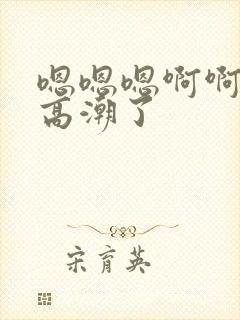 嗯嗯嗯啊啊
高潮了
宋育英